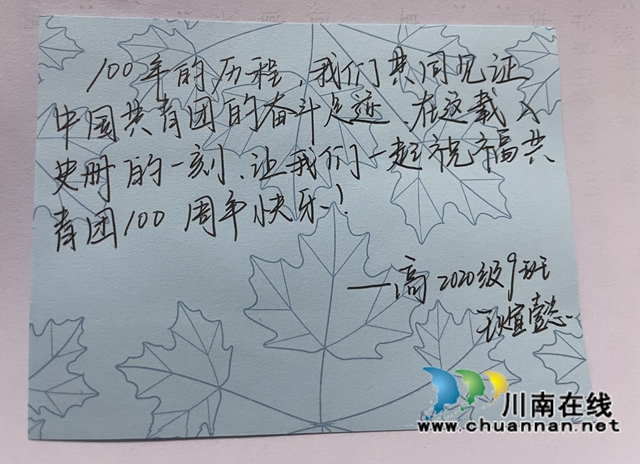 100年的历程,我们共同见证
中国共青团的奋斗足迹 在这载入
史册的一刻、让我们一起祝福共
青团100周年快乐!
——高2020级9班
王煊懿
川南在线
www.chuannan.net